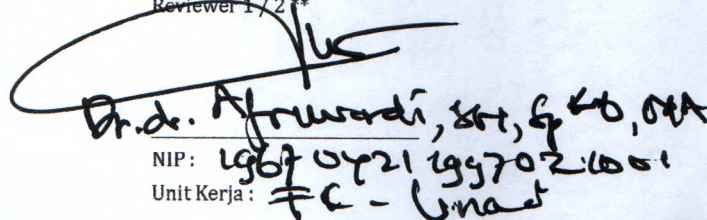 Reviewer 1 / 2 **
Dr. dr. Afriwardi, SH, Sp KO, MA
NIP : 19670421 199702 1001
Unit Kerja : FK - Unand